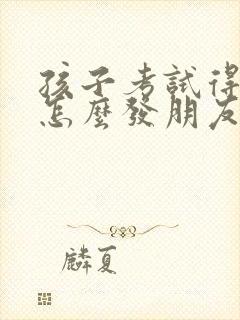 孩子考試得
怎麼發朋友
麟夏